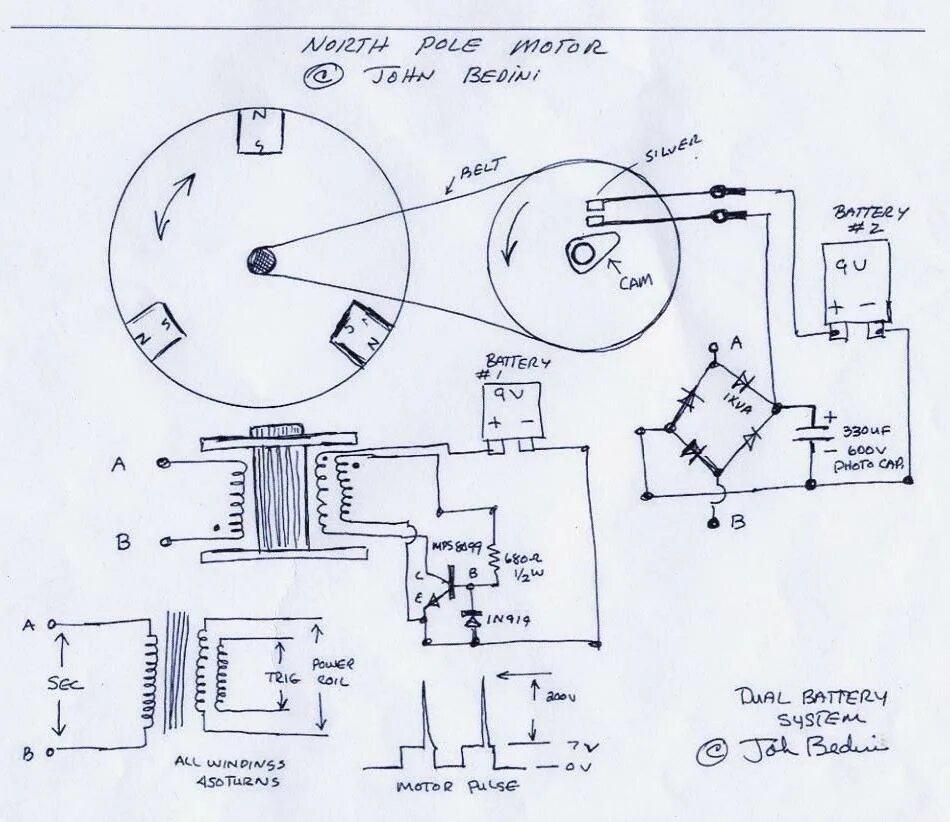 NORTH POLE MOTOR
© JOHN BEDINI
N
S
BELT
SILVER
CAM
BATTERY
#2
9V
+ −
N S
S N
BATTERY
#1
9V
+ −
A
1KVA
+
330UF
600V
−
PHOTO CAP.
B
A
B
MPS8099
680Ω
1/2W
C
B
E
1N914
A
SEC
B
TRIG
POWER
COIL
ALL WINDINGS
450 TURNS
200V
7V
0V
MOTOR PULSE
DUAL BATTERY
SYSTEM
© John Bedini